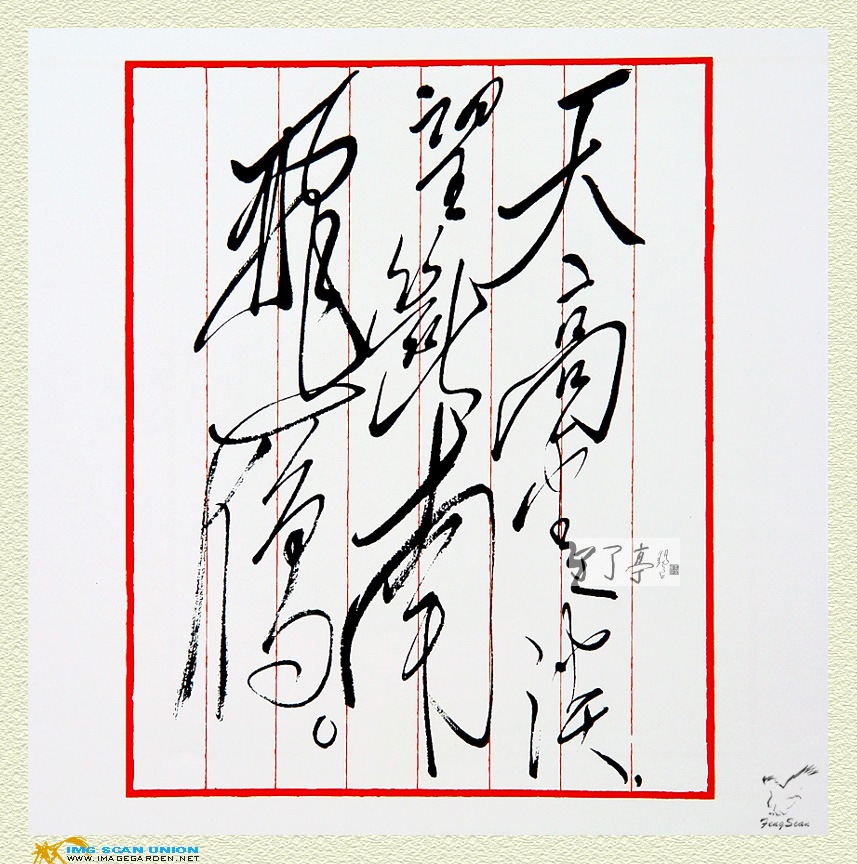 天高雲淡，
望斷南
飛雁。
了亭
FengScan
IMG SCAN UNION
WWW.IMAGEGARDEN.NET